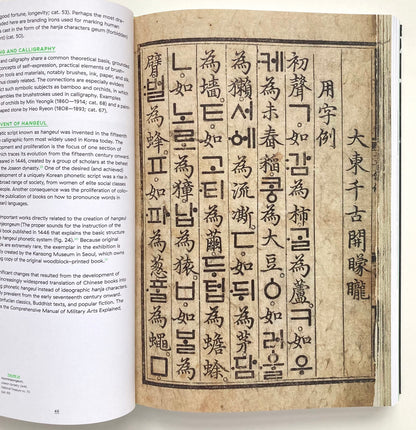 good fortune, longevity; cat. 53). Perhaps the most dra-
ded here are branding irons used for marking human
cast in the form of the hanja characters geum (forbidden
) (cat. 50).
NG AND CALLIGRAPHY
and calligraphy share a common theoretical basis, grounded
concepts of self-expression, practical elements of brush-
on tools and materials, notably brushes, ink, paper, and silk.
closely related. The connections are especially evident
ct with such symbolic subjects as bamboo and orchids, in which
resembles the brushstrokes used in calligraphy. Examples
of orchids by Min Yeongik (1860–1914; cat. 68) and a paint-
played bamboo by Heo Ryeon (1808–1893; cat. 67).
VENT OF HANGEUL
etic script known as hangeul was invented in the fifteenth
calligraphic form most widely used in Korea today. The
ment and proliferation is the focus of one section of
ich traces its evolution from the fifteenth century onward.
eated in 1446, created by a group of scholars at the behest
One of the desired (and achieved)
development of a uniquely Korean phonetic script was a rise in
broad range of society, from women of elite social classes
people. Another consequence was the proliferation of collo-
the publication of books on how to pronounce words in
languages.
important works directly related to the creation of hangeul
(The proper sounds for the instruction of the
book published in 1446 that explains the basic structure
hangeul phonetic system (fig. 24). Because original
are extremely rare, the exemplar in the exhibition is
by the Kansong Museum in Seoul, which owns
copy of the original woodblock-printed book.
nificant changes that resulted from the development of
increasingly widespread translation of Chinese books into
phonetic hangeul instead of ideographic hanja characters
y prevalent from the early seventeenth century onward.
onfucian classics, Buddhist texts, and popular fiction. The
Comprehensive Manual of Military Arts Explained,
大東千古開矇矓
用字例
初聲ㄱ。如감為柿。ᄀᆞᆯ為蘆。ㅋ。如우
케為未舂稻。콩為大豆。ㆁ。如러울
為獺。서에為流凘。ㄷ。如뒤為茅。담
為墻。ㅌ。如고티為繭。두텁為蟾蜍。
ㄴ。如노로為獐。납為猿。ㅂ。如ᄇᆞᆯ為
臂。벌為蜂。ㅍ。如파為葱。ᄑᆞᆯ為蠅。ㅁ。